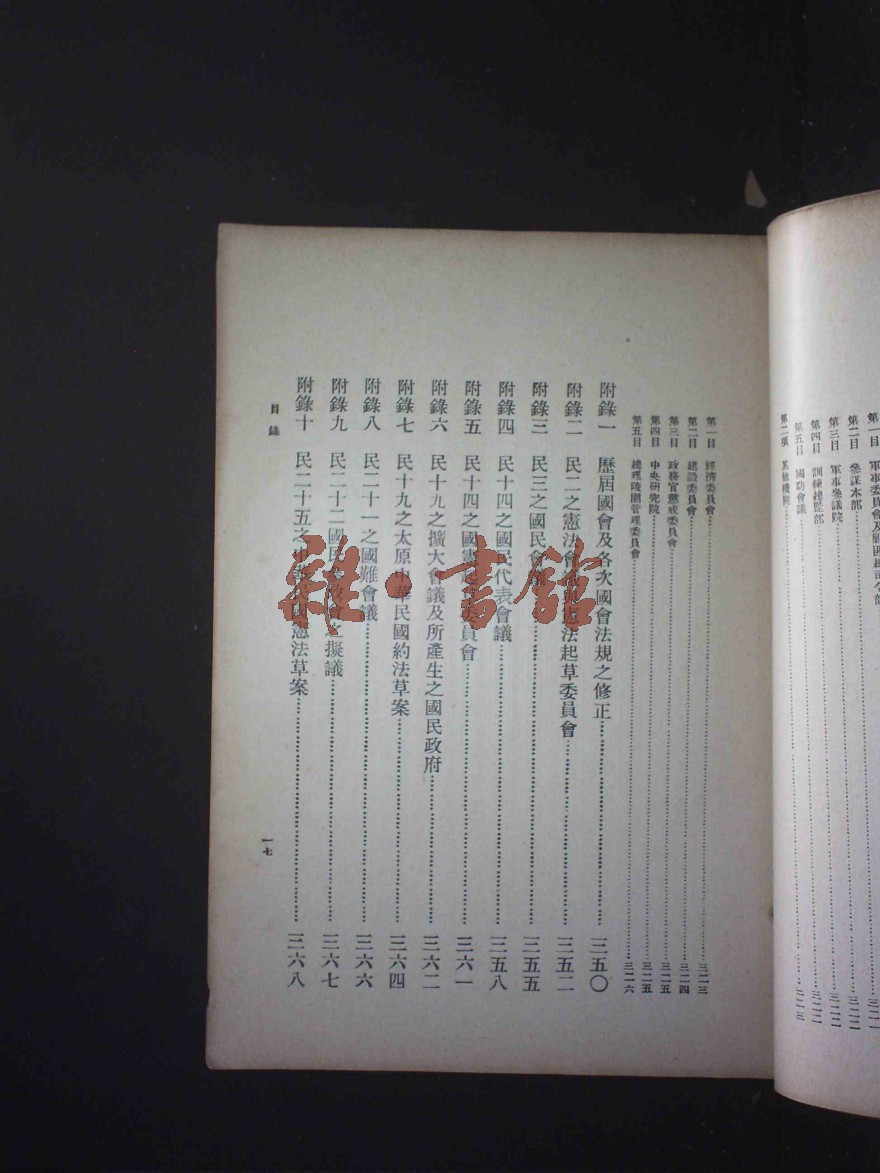 第一目 軍事委員會及
第二目 參謀本部 三二二
第三目 軍事參議院 三二二
第四目 訓練總監部 三二二
第五目 國防會議 三二三
第二項
第一目 經濟委員會 三二三
第二目 建設委員會 三二四
第三目 政務官懲戒委員會 三二五
第四目 中央研究院 三二五
第五目 總理陵園管理委員會 三二六
附錄一 歷屆國會及各次國會法規之修正 三五〇
附錄二 民二之憲法會 憲法起草委員會 三五二
附錄三 民三之國民會 三五五
附錄四 民十四之國民代表會議 三五八
附錄五 民十四之國憲起草委員會 三六一
附錄六 民十九之擴大會議及所產生之國民政府 三六二
附錄七 民十九之太原中華民國約法草案 三六四
附錄八 民二十一之國難會議 三六六
附錄九 民二十二國民 之擬議 三六七
附錄十 民二十五之中華民國憲法草案 三六八
目錄
一七
雜·書館